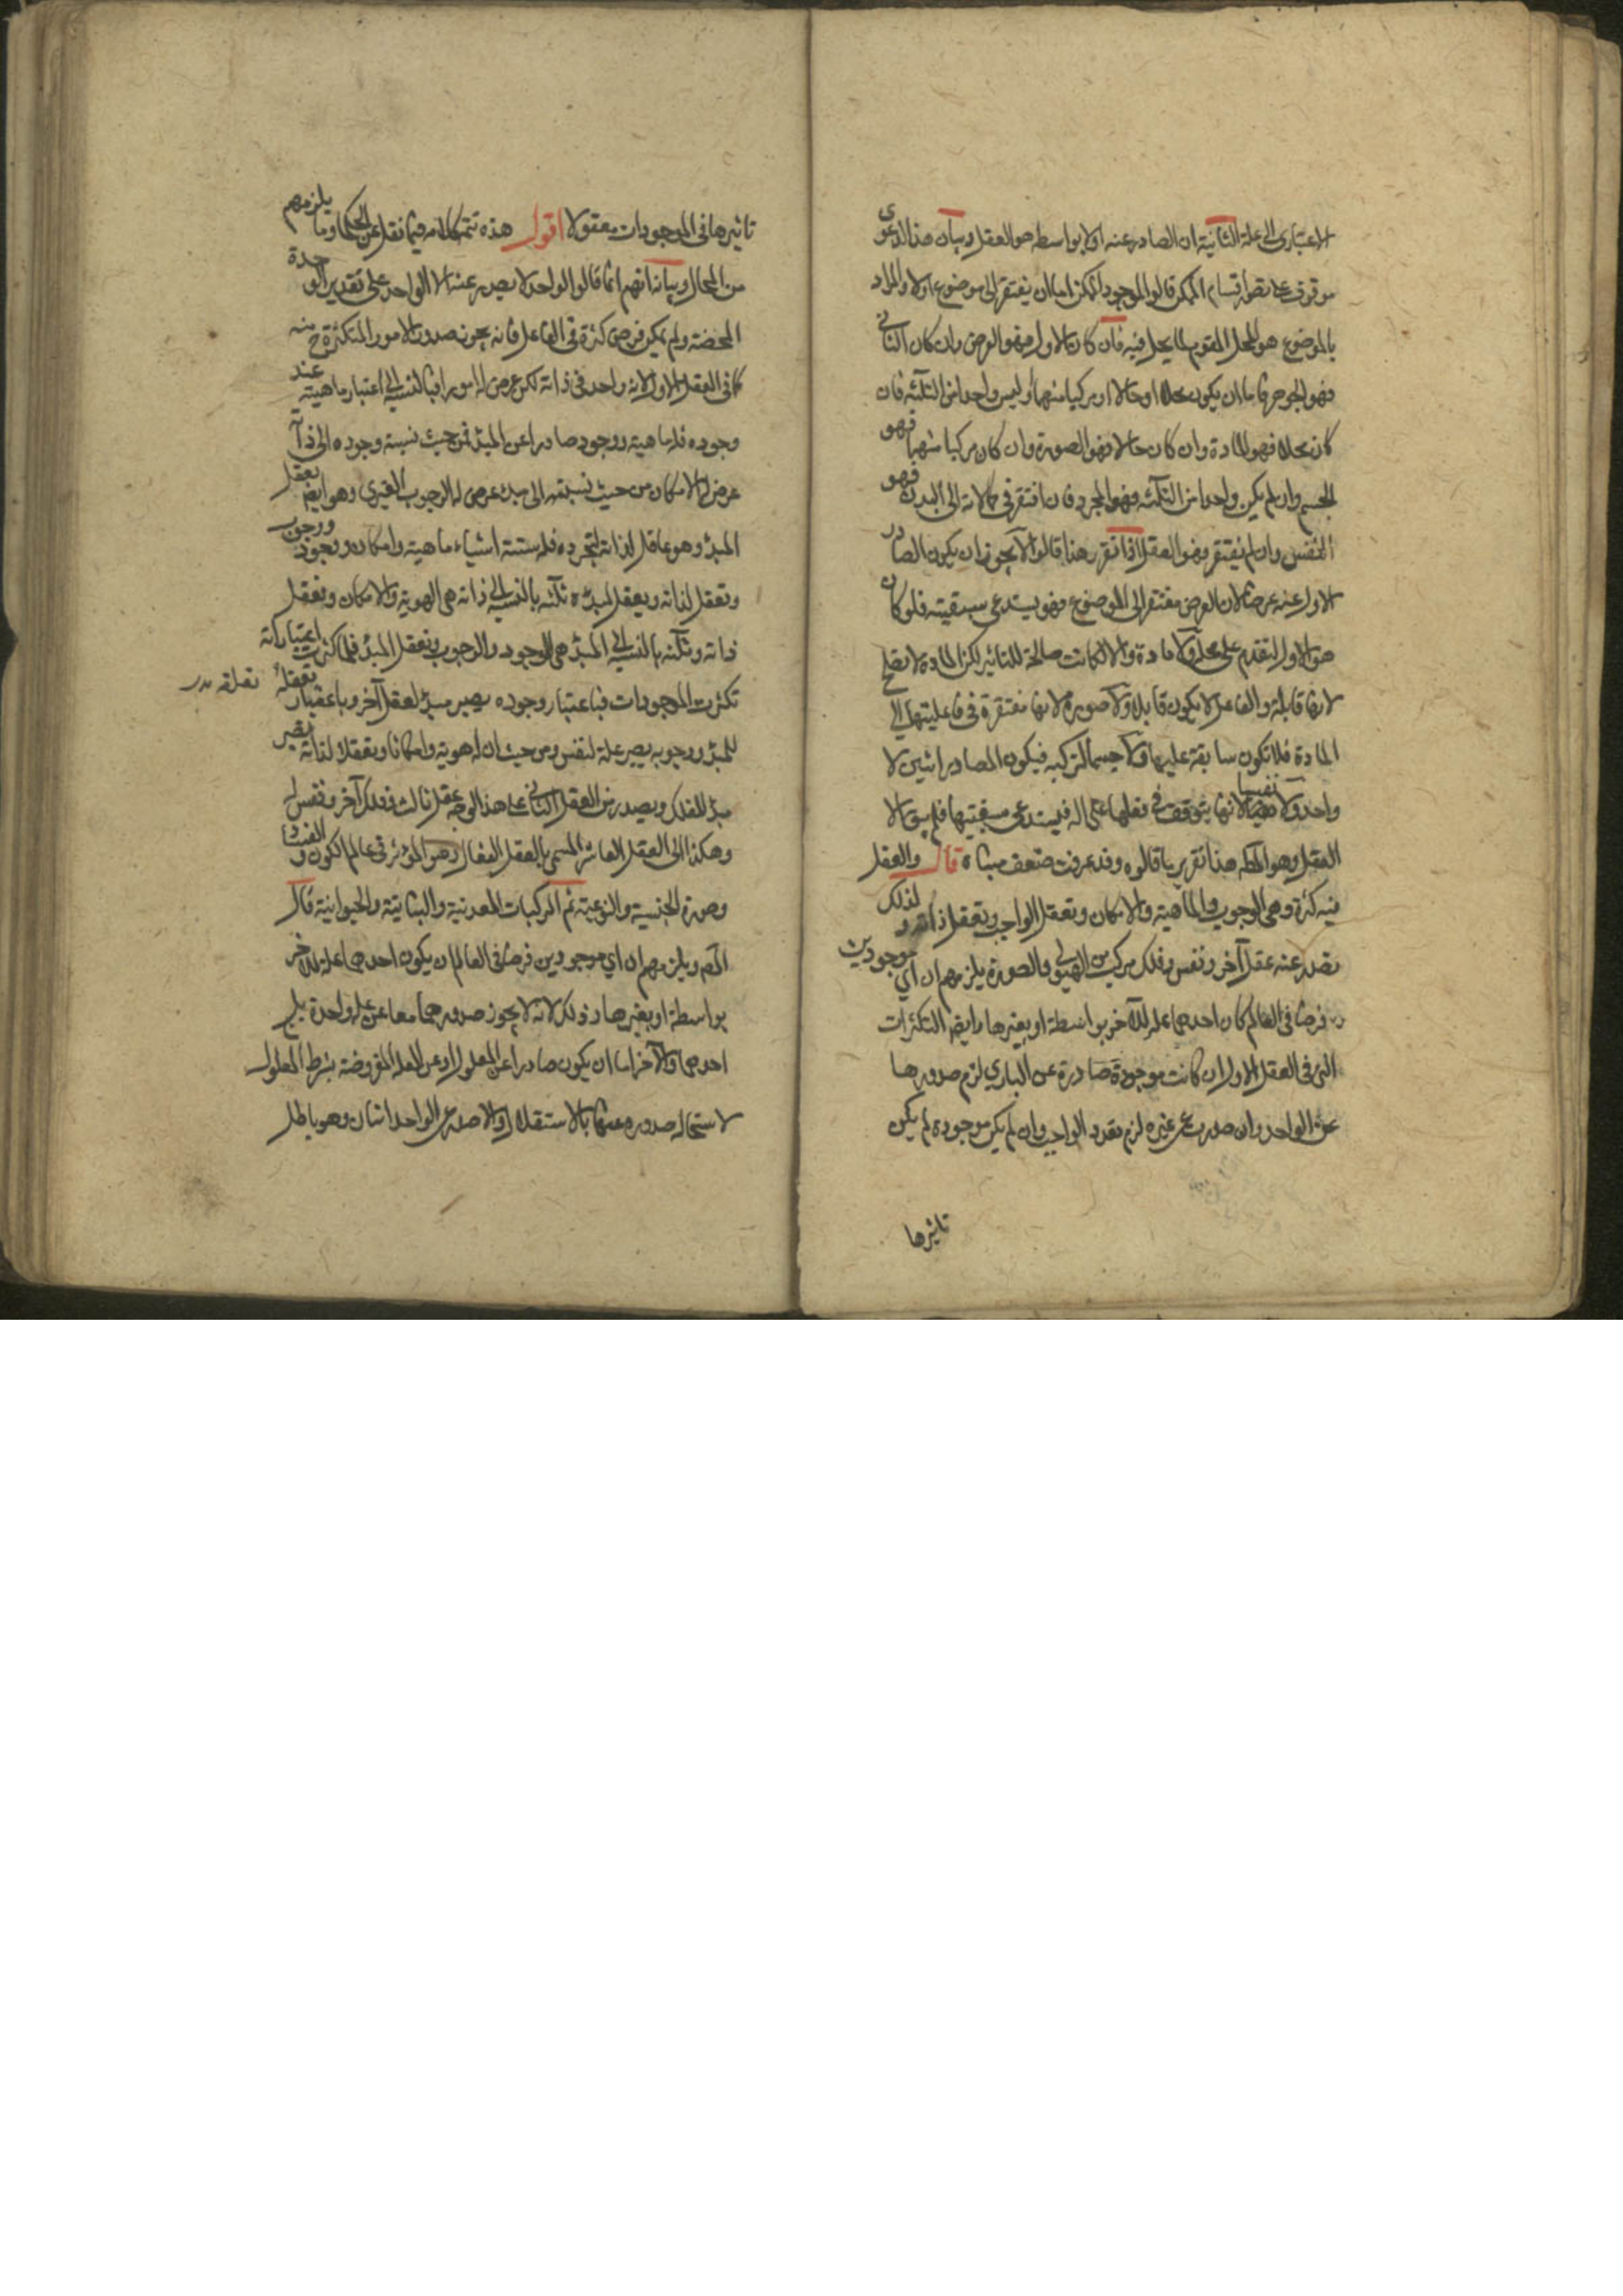 الاعتباري الى علة الثانية ان الصادر عنه اولا بواسطه هو العقل وبيان هذا الدعوى
موقوف على تصور اقسام الممكن قالوا الموجود الممكن اما ان يفتقر الى موضوع اولا والمراد
بالموضوع هو المحل المقوم لما يحل فيه فان كان الاول فهو العرض وان كان الثاني
فهو الجوهر فاما ان يكون محلا او حالا او مركبا منهما او ليس واحدا من الثلثة فان
كان محلا فهو المادة وان كان حالا فهو الصورة وان كان مركبا منهما فهو
الجسم وان لم يكن واحدا من الثلثة فهو المجرد فان افتقر في كمالاته الى البدن فهو
النفس وان لم يفتقر فهو العقل اذا تقرر هذا قالوا لا يجوز ان يكون الصادر
الاول عنه عرضا لان العرض مفتقر الى الموضوع فهو يستدعي سبقيته فلو كان
هو الاول لتقدم على محله ولا مادة والا لكانت صالحة للتاثير لكن المادة لا تصلح
لانها قابلة والفاعل لا يكون قابلا ولا صورة لانها مفتقرة في فاعليتها الى
المادة فلا تكون سابقة عليها ولا جسما لتركبه فيكون الصادر اثنين لا
واحد ولا نفسا لانها يتوقف فعلها على اله فيستدعى سبقيتها فلم يبق الا
العقل وهو المط هذا تقرير ما قالوه وقد عرفت ضعف مبناه قال والعقل
فيه كثرة وهي الوجوب والماهية والامكان وتعقل الواجب وتعقل ذاته ولذلك
تصدر عنه عقل آخر ونفس وفلك مركب من الهيولى والصورة يلزمهم ان اي موجودين
فرضا في العالم كان احدهما علة للآخر بواسطة او بغيرها وايضا التكثرات
التي في العقل الاول ان كانت موجودة صادرة عن الباري لزم صدورها
عن الواحد وان صدرت عن غيره لزم تعدد الواجب وان لم يكن موجودة لم يكن
تاثيرها
تاثيرها في الموجودات معقولا اقول هذه تتمة كلامه فيما نقل عن الحكما وما يلزمهم
من المحال وبيانه انهم انما قالوا الواحد لا يصدر عنه الا الواحد على تقدير الوحدة
المحضة ولم يمكن فرض كثرة في الفاعل فانه يجوز صدور الامور المتكثرة ح منه
كما في العقل الاول لانه واحد في ذاته لكن عرض له امور اما بالنسبة الى اعتبار ماهيته عند
وجوده فله ماهية ووجود صادرا عن المبدء فمن حيث نسبة وجوده الى ذاته
عرض له الامكان من حيث نسبته الى مبدئه عرض له الوجوب الغيري وهو ايضا يعقل
المبدء وهو عاقل لذاته لتجرده فله ستة اشياء ماهية وامكان ووجود ووجوب
وتعقل لذاته ويعقل لمبدئه ثلثة بالنسبة الى ذاته هي الهوية والامكان وتعقل
ذاته وثلثة بالنسبة الى المبدء هي الوجود والوجوب وتعقل المبدء فلما كثرت اعتباراته
تكثرت الموجودات فباعتبار وجوده يصير مبدء لعقل آخر وباعتبار تعقله
للمبدء ووجوبه يصير علة لنفس ومن حيث ان له هوية وامكانا وتعقلا لذاته يصير
مبدء للفلك ويصدر من العقل الثاني على هذا الوجه عقل ثالث وفلك آخر ونفس له
وهكذا الى العقل العاشر المسمى بالعقل الفعال وهو المؤثر في عالم الكون والفساد
وصورة الجنسية والنوعية ثم المركبات المعدنية والنباتية والحيوانية قال
المص ويلزمهم ان اي موجودين فرضا في العالم ان يكون احدهما علة للاخر
بواسطة او بغيرها وذلك لانه لا يجوز صدورهما معا عن علة واحدة بل
احدهما والآخر اما ان يكون صادرا عن المعلول او عن العلة المفروضة بشرط المعلول
لاستحالة صدوره عنها بالاستقلال والا صدر عن الواحد اثنان وهو باطل